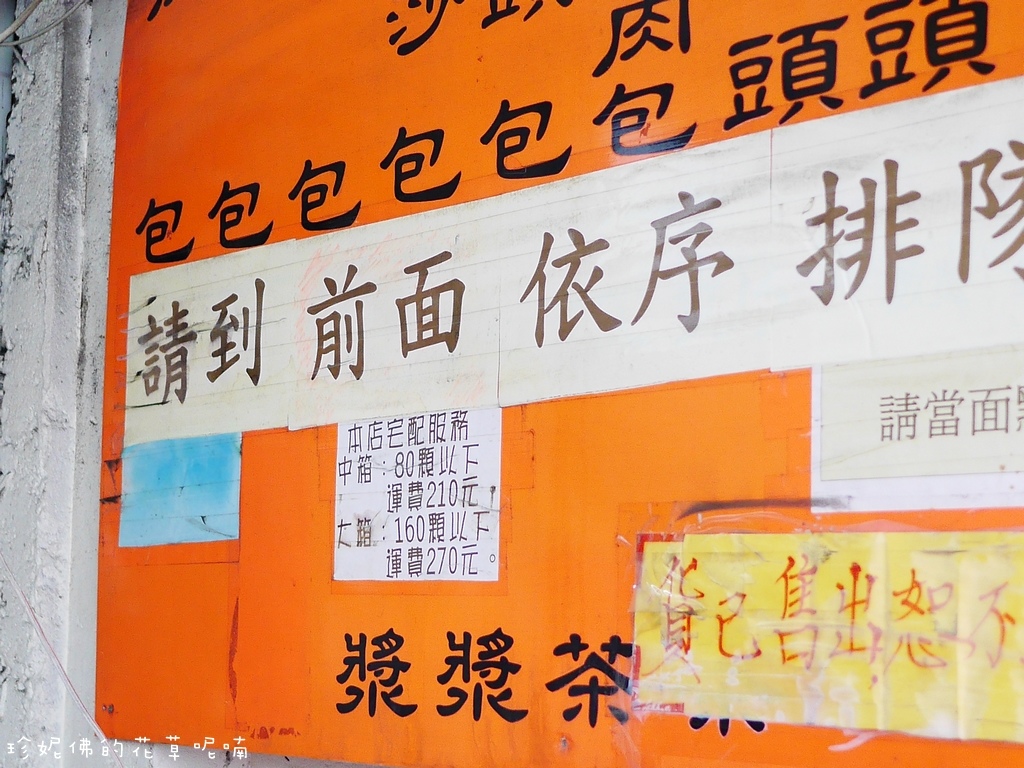 沙
肉
頭頭
包包包包包包
請到前面依序排隊
請當面點
本店宅配服務
中箱：80顆以下
運費210元，
大箱：160顆以下
運費270元。
貨已售出恕不
漿漿茶
珍妮佛的花草呢喃